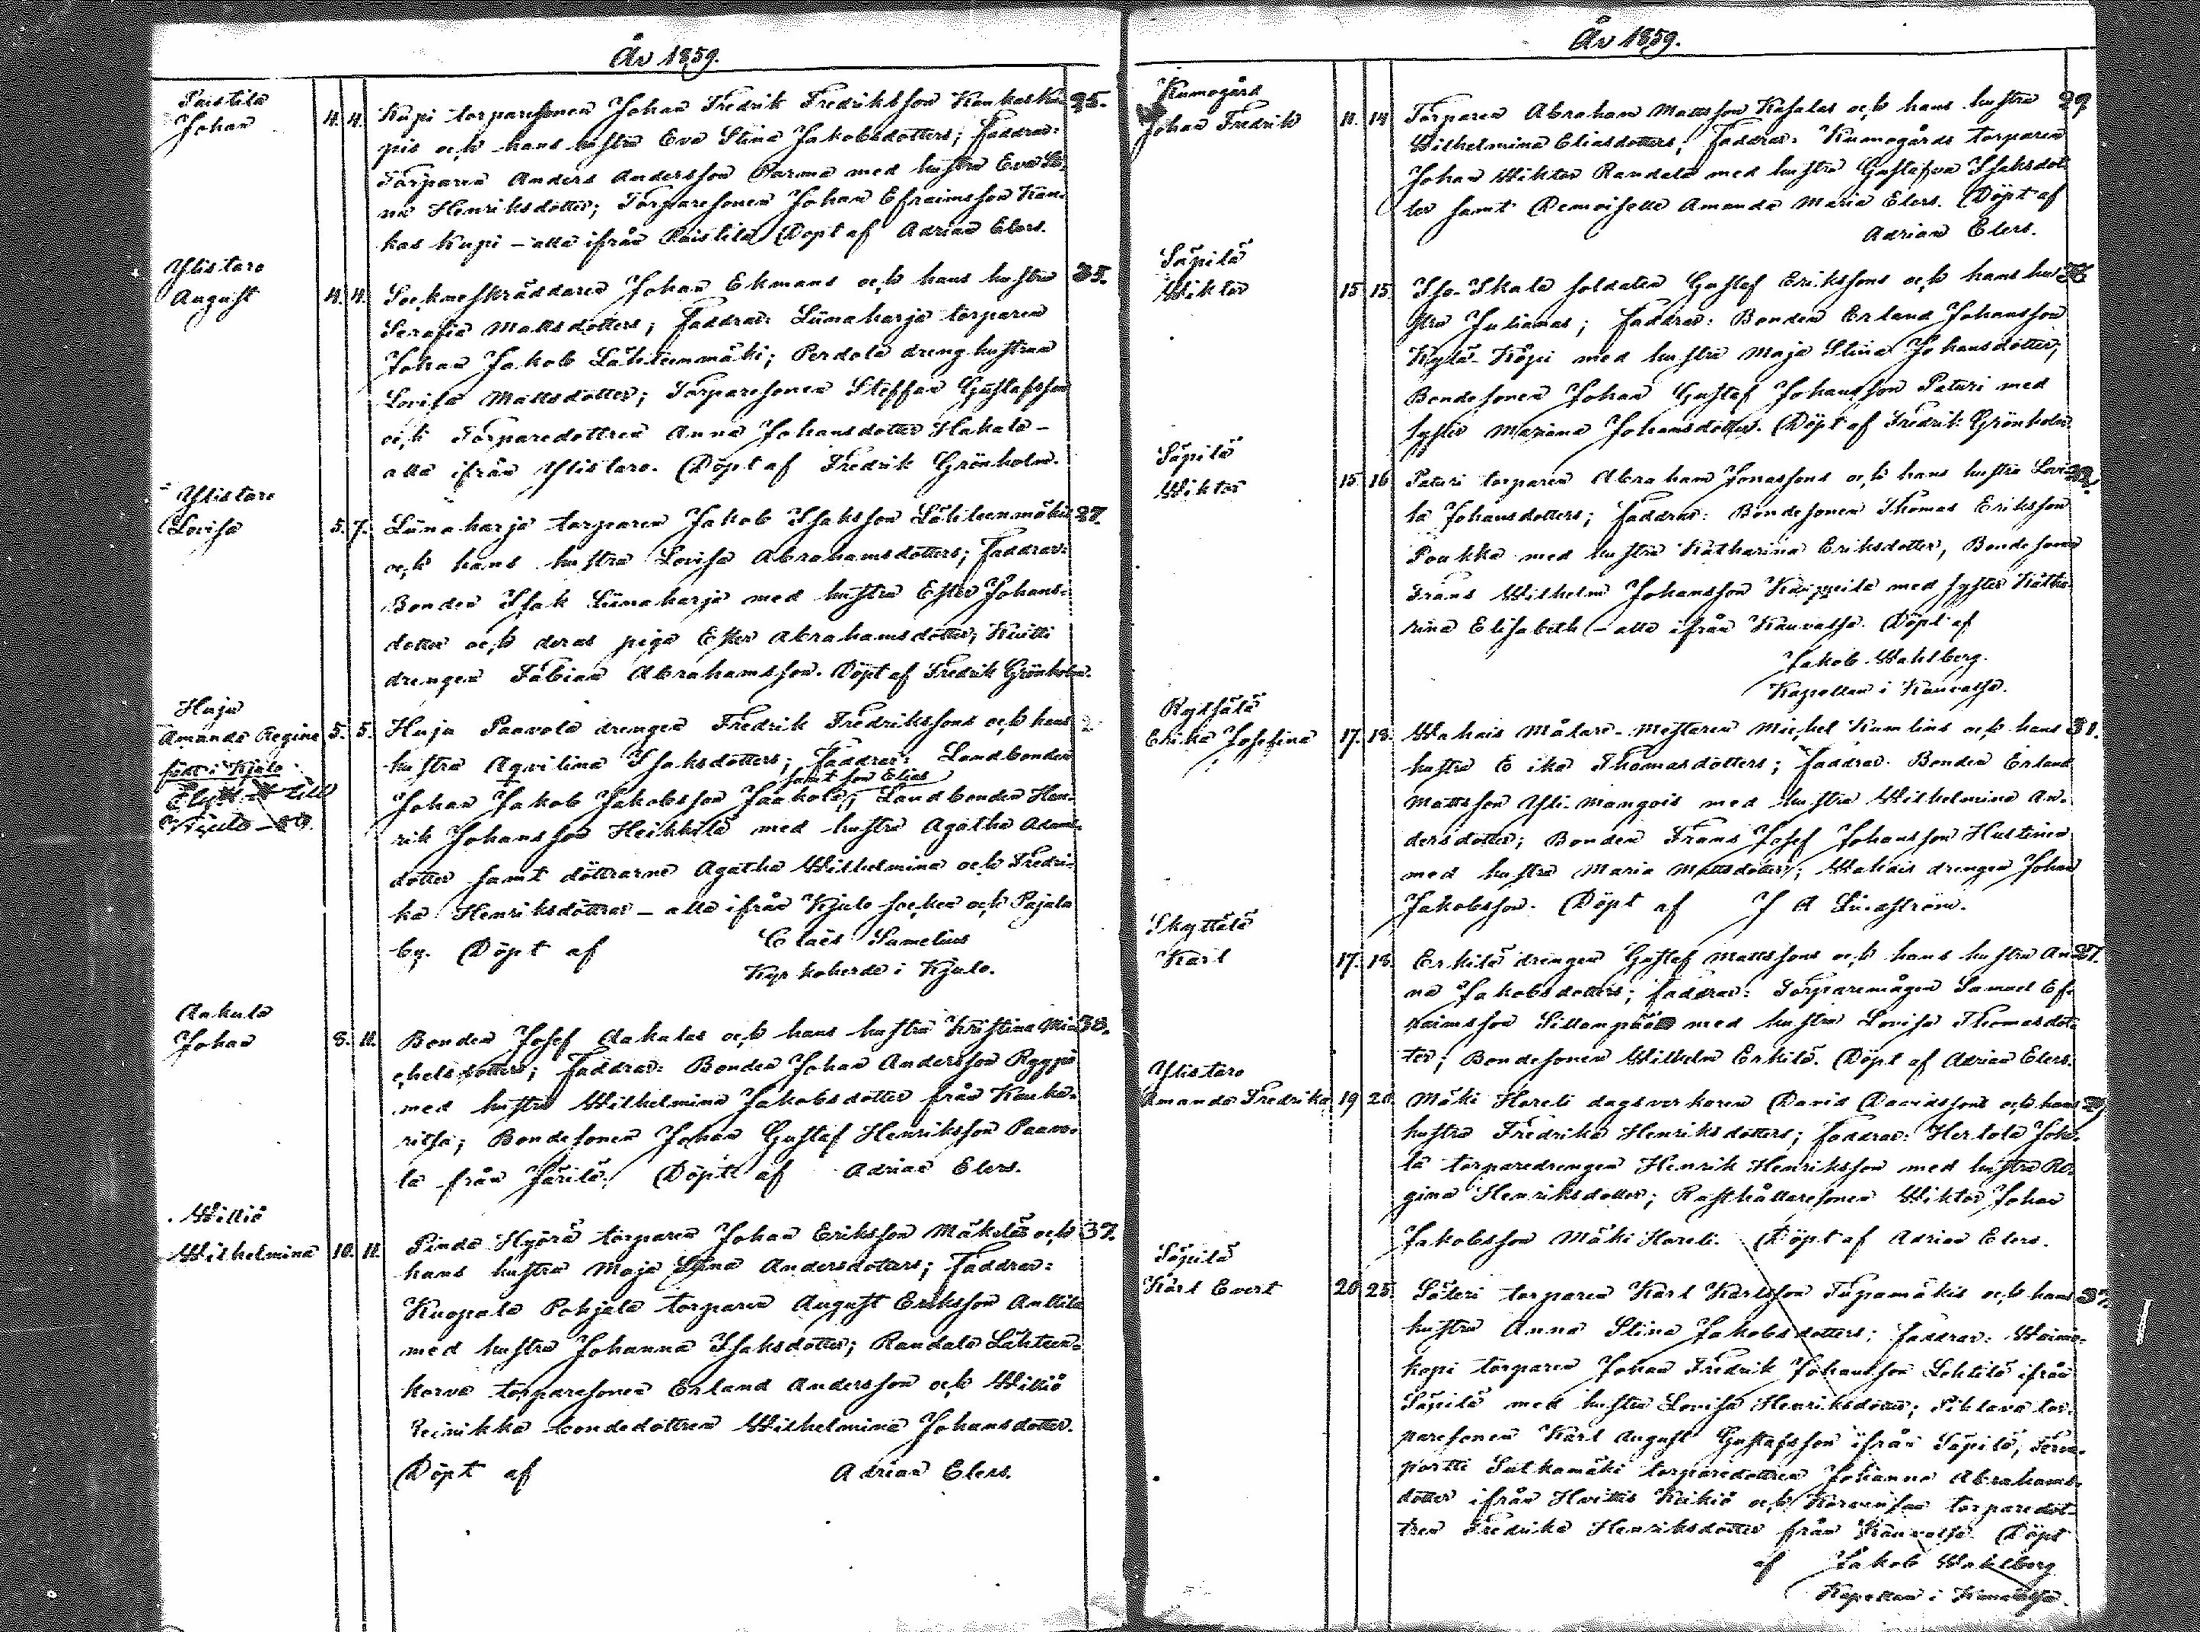 År 1859.
Paistila
Johan 4. 4. Kupi torparesonen Johan Fredrik Fredriksson Kankasku- 25.
pis och hans hustru Eva Stina Jakobsdotters; Faddrar:
Torparen Anders Andersson Parma med hustru Eva Sti-
na Henriksdotter; Torparesonen Johan Efraimsson Kan-
kas Kupi – alla ifrån Paistila Döpt af Adrian Elers.
Ylistaro
August 4. 4. Sockneskräddaren Johan Ekmans och hans hustru 35.
Serafia Mattsdotters; Faddrar: Liinaharja torparen
Johan Jakob Lähteenmäki; Perdola dreng hustrun
Lovisa Mattsdotter; Torparesonen Steffan Gustafsson
och Torparedottren Anna Johansdotter Hakala –
alla ifrån Ylistaro. Döpt af Fredrik Grönholm.
Ylistaro
Lovisa 5. 7. Liinaharja torparen Jakob Isaksson Lähteenmäkis 27.
och hans hustru Lovisa Abrahamsdotters; Faddrar:
Bonden Isak Liinaharja med hustru Ester Johans-
dotter och deras piga Ester Abrahamsdotter; Knitti
drengen Fabian Abrahamsson. Döpt af Fredrik Grönholm.
Haja
Amanda Regina 5. 5. Haja Paavola drengen Fredrik Fredrikssons och hans
född i Kjulo
hustru Aqvilina Isaksdotters; Faddrar: Landbonden
samt son Elias
Johan Jakob Jakobsson Jaakola; Landbonden Hen-
rik Johansson Heikkilä med hustru Agatha Adams-
dotter samt döttrarne Agatha Wilhelmina och Fredri-
ka Henriksdöttrar – alla ifrån Kjulo socken och Pajala
by. Döpt af Claës Samelius
Kyrkoherde i Kjulo.
Aakula
Johan 8. 11. Bonden Josef Aakulas och hans hustru Kristina Mi- 38.
chelsdotters; Faddrar: Bonden Johan Andersson Ryyppä
med hustru Wilhelmina Jakobsdotter från Kauka-
ritsa; Bondesonen Johan Gustaf Henriksson Paavo-
la från Järilä. Döpt af Adrian Elers.
Williö
Wilhelmina 10. 11. Pinda Hyörä torparen Johan Eriksson Mäkeläs och 37.
hans hustru Maja Stina Andersdotters; Faddrar:
Kuopala Pohjala torparen August Eriksson Anttila
med hustru Johanna Isaksdotter; Randala Lähteen-
korva torparesonen Erland Andersson och Williö
Reinikka bondedottren Wilhelmina Johansdotter.
Döpt af Adrian Elers.
År 1859.
Kumogård
Johan Fredrik 11. 14 Torparen Abraham Mattsson Kasalas och hans hustru 29
Wilhelmina Eliasdotters; Faddrar: Kumogårds torparen
Johan Wiktor Randala med hustru Gustafva Isaksdot-
ter samt Demoiselle Amanda Maria Elers. Döpt af
Adrian Elers.
Säpilä
Wiktor 15 15. Iso-Skala soldaten Gustaf Erikssons och hans hu-
stru Julianas; Faddrar: Bonden Erland Johansson
Kylä-Köpi med hustru Maja Stina Johansdotter;
Bondesonen Johan Gustaf Johansson Paturi med
syster Mariana Johansdotter. Döpt af Fredrik Grönholm
Säpilä
Wiktor 15 16 Paturi torparen Abraham Jonassons och hans hustru Lovi-
sa Johansdotters; Faddrar: Bondesonen Thomas Eriksson
Poukka med hustru Katharina Eriksdotter, Bondesonen
Frans Wilhelm Johansson Karppila med syster Katha-
rina Elisabeth – alla ifrån Kauvatsa. Döpt af
Jakob Wahlberg.
Kapellan i Kauvatsa.
Ryttälä
Erika Josefina 17. 18. Wahais Målare-mästaren Michel Kumlins och hans 31.
hustru E ika Thomasdotters; Faddrar: Bonden Erland
Mattsson Yli-mangois med hustru Wilhelmina An-
dersdotter; Bonden Frans Josef Johansson Hustinen
med hustru Maria Mattsdotter; Wahais drengen Johan
Jakobsson. Döpt af J A Lindström.
Skyttälä
Karl 17. 18. Erkilä drengen Gustaf Mattssons och hans hustru An- 27.
na Jakobsdotters; faddrar: Torparemågen Samuel Ef-
raimsson Sillanpää med hustru Lovisa Thomasdot-
ter; Bondesonen Wilhelm Erkilä. Döpt af Adrian Elers.
Ylistaro
Amanda Fredrika 19 20. Mäki Horeli dagsverkaren David Davidssons och hans 29
hustru Fredrika Henriksdotters; Faddrar: Hertola Joh-
la torparedrengen Henrik Henriksson med hustru Re-
gina Henriksdotter; Rusthållaresonen Wiktor Johan
Jakobsson Mäki Horeli. Döpt af Adrian Elers.
Säpilä
Karl Evert 20 25. Säteri torparen Karl Karlsson Tupamäkis och hans 37.
hustru Anna Stina Jakobsdotters; faddrar: Waini-
kopi torparen Johan Fredrik Johansson Lehtilä ifrån
Säpilä med hustru Lovisa Henriksdotter; Piklava tor-
paresonen Karl August Gustafsson ifrån Säpilä, Terva-
portti Satkamäki torparedottren Johanna Abrahams-
dotter ifrån Hvittis Keikiö och torparedot-
tren Fredrika Henriksdotter från Kauvatsa. Döpt
af Jakob Wahlberg
Kapellan i Kauvatsa.